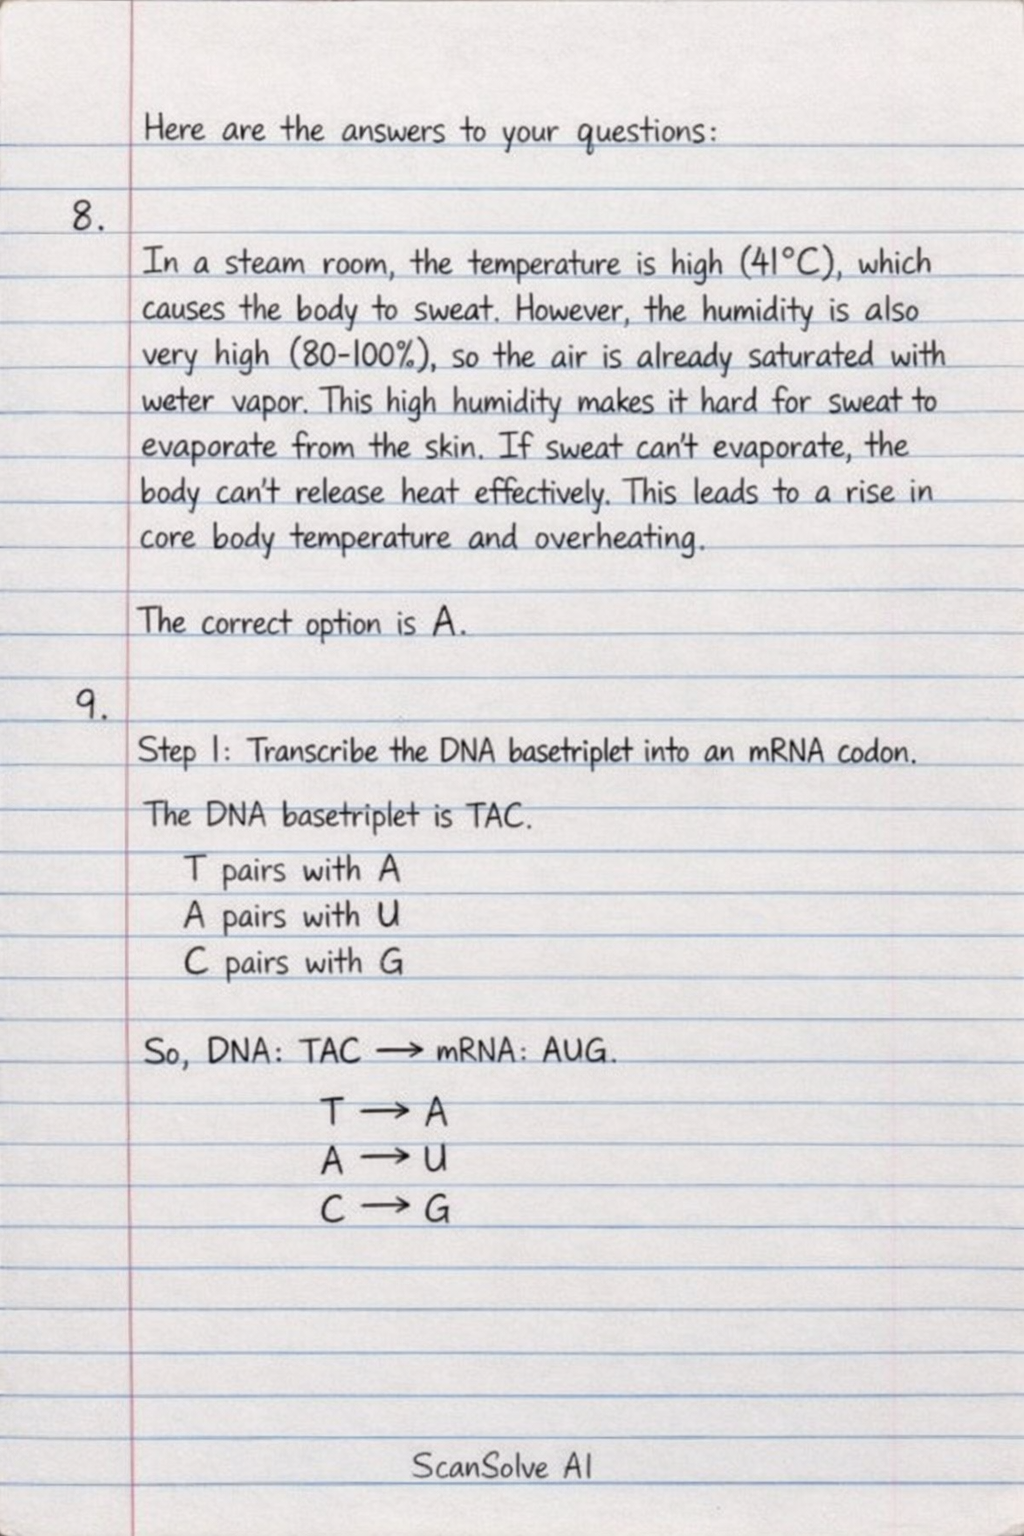 Here are the answers to your questions:
8.
In a steam room, the temperature is high (41°C), which
causes the body to sweat. However, the humidity is also
very high (80-100%), so the air is already saturated with
weter vapor. This high humidity makes it hard for sweat to
evaporate from the skin. If sweat can't evaporate, the
body can't release heat effectively. This leads to a rise in
core body temperature and overheating.
The correct option is A.
9.
Step 1: Transcribe the DNA basetriplet into an mRNA codon.
The DNA basetriplet is TAC.
T pairs with A
A pairs with U
C pairs with G
So, DNA: TAC → mRNA: AUG.
T → A
A → U
C → G
ScanSolve AI